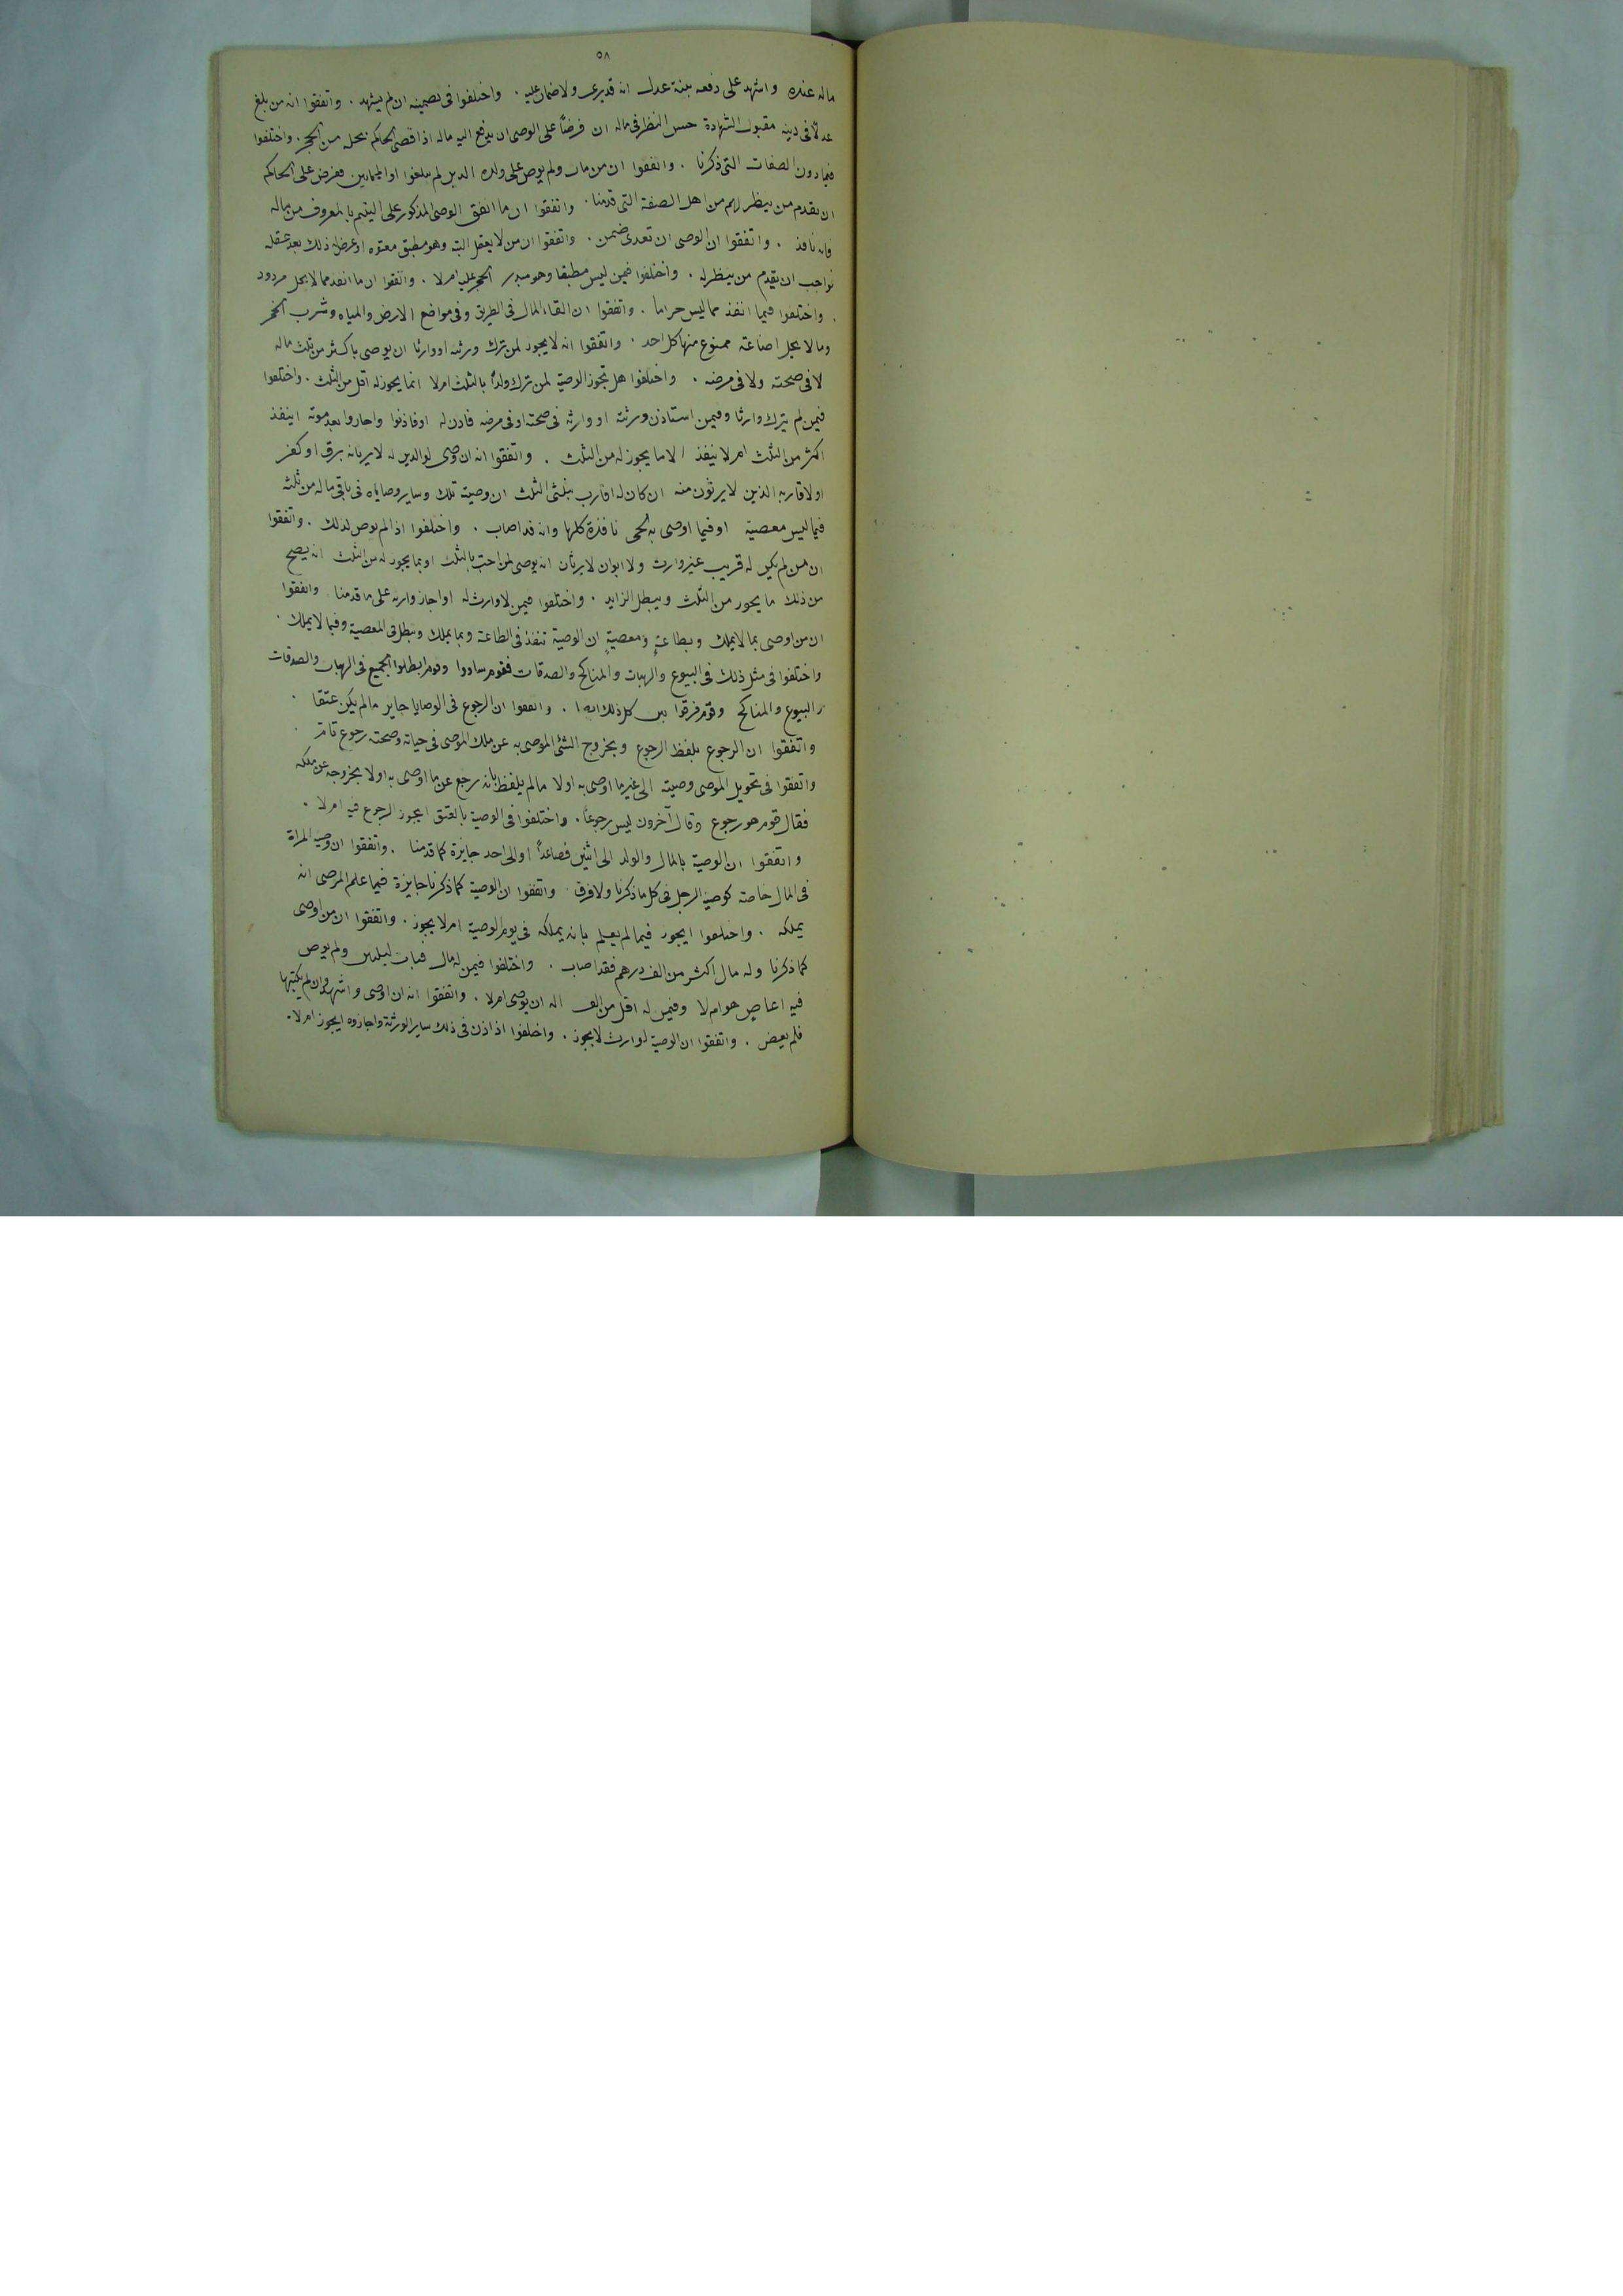 ٥٨
ماله عنده واشهد على دفعه بينة عدل انه قد برى ولا ضمان عليه . واختلفوا فى تضمينه ان لم يشهد . واتفقوا انه من بلغ
عدلًا فى دينه مقبول الشهادة حسن النظر فى ماله ان فرضًا على الوصى ان يدفع اليه ماله اذا قضى الحاكم بحله من الحجر . واختلفوا
فيما دون الصفات التى ذكرنا . واتفقوا ان من مات ولم يوص على ولده الذين لم يبلغوا او المجانين ففرض على الحاكم
ان يقدم من ينظر لهم من اهل الصفة التى قدمنا . واتفقوا ان ما انفق الوصى المذكور على اليتيم بالمعروف من ماله
فانه نافذ . واتفقوا ان الوصى ان تعدى ضمن . واتفقوا ان من لا يعقل البتة وهو مطبق معتوه او عرض له ذلك بعد عقله
فواجب ان يقدم من ينظر له . واختلفوا فيمن ليس مطبقا وهو مبذر الحجر عليه ام لا . واتفقوا ان ما انفذ مما لا يحل مردود
. واختلفوا فيما انفذ مما ليس حراما . واتفقوا ان القاء المال فى الطريق وفى مواضع الارض والمياه وشرب الخمر
وما لا يحل اضاعة ممنوع منها كل احد . واتفقوا انه لا يجوز لمن ترك ورثة او وارثا ان يوصى باكثر من ثلث ماله
لا فى صحته ولا فى مرضه . واختلفوا هل تجوز الوصية لمن ترك ولدًا بالثلث ام لا انما يجوز له اقل من الثلث . واختلفوا
فيمن لم يترك وارثا وفيمن استاذن ورثته او وارثه فى صحته او فى مرضه فاذن له اوفاذنوا واجازوا بعد موته اينفذ
اكثر من الثلث ام لا ينفذ الا ما يجوز له من الثلث . واتفقوا انه ان وصى لوالدين له لا يرثانه برق او كفر
او لاقاربه الذين لا يرثون منه ان كان له اقارب بثلثى الثلث ان وصيته تلك وساير وصاياه فى باقى ماله من ثلثه
فيما ليس معصية او فيما اوصى به لحى نافذة كلها وانه قد اصاب . واختلفوا اذا لم يوص لذلك . واتفقوا
ان من لم يكن له قريب غير وارث ولا ابوان لا يرثان انه يوصى لمن احب بالثلث او بما يجوز له من الثلث انه يصح
من ذلك ما يجوز من الثلث ويبطل الزايد . واختلفوا فيمن لا وارث له او اجاز وارثه على ما قدمنا واتفقوا
ان من اوصى بما لا يملك وبطاعةٍ ومعصيةٍ ان الوصية تنفذ فى الطاعة وبما يملك وتبطل فى المعصية وفيما لا يملك .
واختلفوا فى مثل ذلك فى البيوع والهبات والمناكح والصدقات فقوم ساووا وقوم ابطلوا الجميع فى الهبات والصدقات
والبيوع والمناكح وقوم فرقوا بين كل ذلك ايضا . واتفقوا ان الرجوع فى الوصايا جايز ما لم يكن عتقا .
واتفقوا ان الرجوع بلفظ الرجوع وبخروج الشئ الموصى به عن ملك الموصى فى حياته وصحته رجوع تام .
واتفقوا فى تحويل الموصى وصيته الى غير ما اوصى به اولا ما لم يلفظ بانه رجع عن ما اوصى به اولا بخروجه عن ملكه
فقال قوم هو رجوع وقال آخرون ليس رجوعًا . واختلفوا فى الوصية بالعتق ايجوز الرجوع فيه ام لا .
واتفقوا ان الوصية بالمال والولد الى اثنين فصاعدًا او الى احد جايزة كما قدمنا . واتفقوا ان وصية المراة
فى المال خاصة كوصية الرجل فى كل ما ذكرنا ولا فرق . واتفقوا ان الوصية كما ذكرنا جايزة فيما علم الموصى انه
يملكه . واختلفوا ايجوز فيما لم يعلم بانه يملكه فى يوم الوصية ام لا يجوز . واتفقوا ان من اوصى
كما ذكرنا وله مال اكثر من الف درهم فقد اصاب . واختلفوا فيمن له مال فبات ليلتين ولم يوص
فيه اعاصٍ هو ام لا وفيمن له اقل من الف اله ان يوصى ام لا . واتفقوا انه ان اوصى واشهد وان لم يكتبها
فلم يعص . واتفقوا ان الوصية لوارث لا يجوز . واختلفوا اذا اذن فى ذلك ساير الورثة واجازوه ايجوز ام لا .